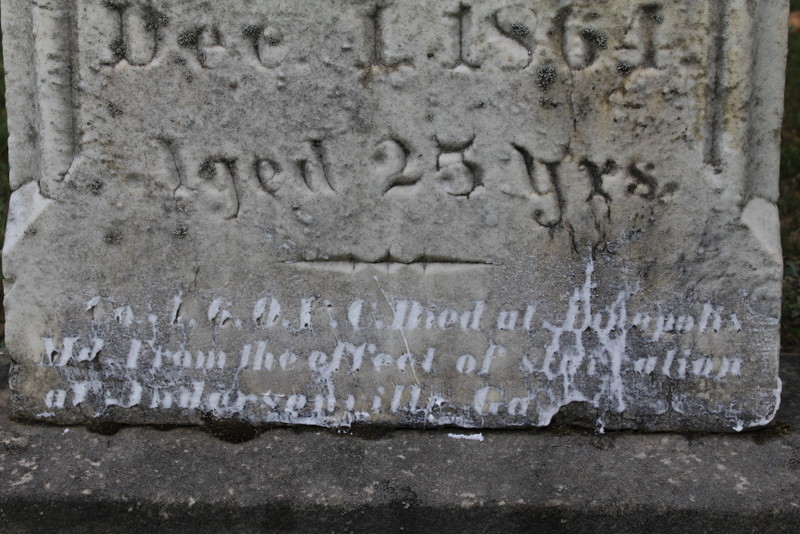 Dec. 1, 1864
Aged 25 yrs.
Co. I. 6. O. V. C. Died at Annapolis
Md. From the effect of starvation
at Andersonville Ga